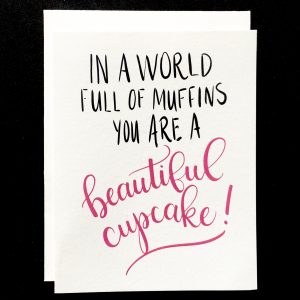 IN A WORLD
FULL OF MUFFINS
YOU ARE A
beautiful
cupcake!